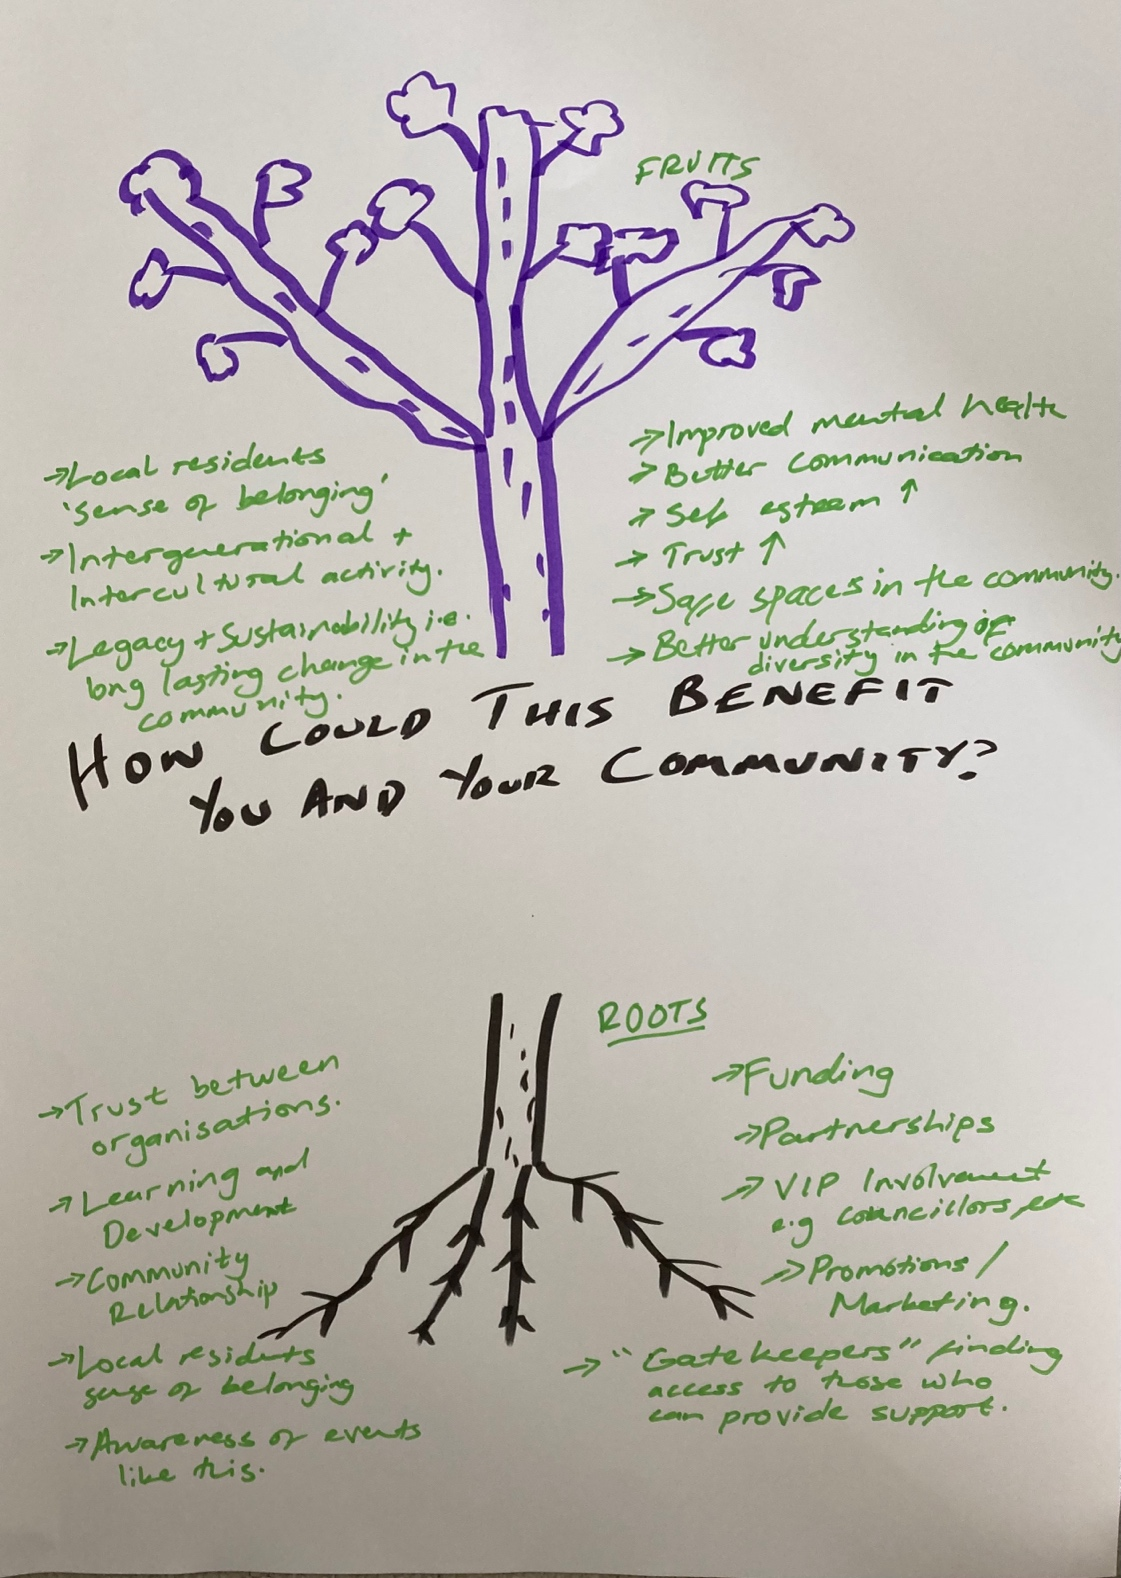 FRUITS
→Local residents
'sense of belonging'
→Intergenerational +
Intercultural activity.
→Legacy + Sustainability i.e.
long lasting change in the
community.
→Improved mental health
→Better communication
→Self esteem ↑
→Trust ↑
→Safe spaces in the community.
→Better understanding of
diversity in the community
HOW COULD THIS BENEFIT
YOU AND YOUR COMMUNITY?
ROOTS
→Trust between
organisations.
→Learning and
Development
→Community
Relationship
→Local residents
sense of belonging
→Awareness of events
like this.
→Funding
→Partnerships
→VIP Involvement
e.g councillors, etc
→Promotions /
Marketing.
→"Gatekeepers" finding
access to those who
can provide support.